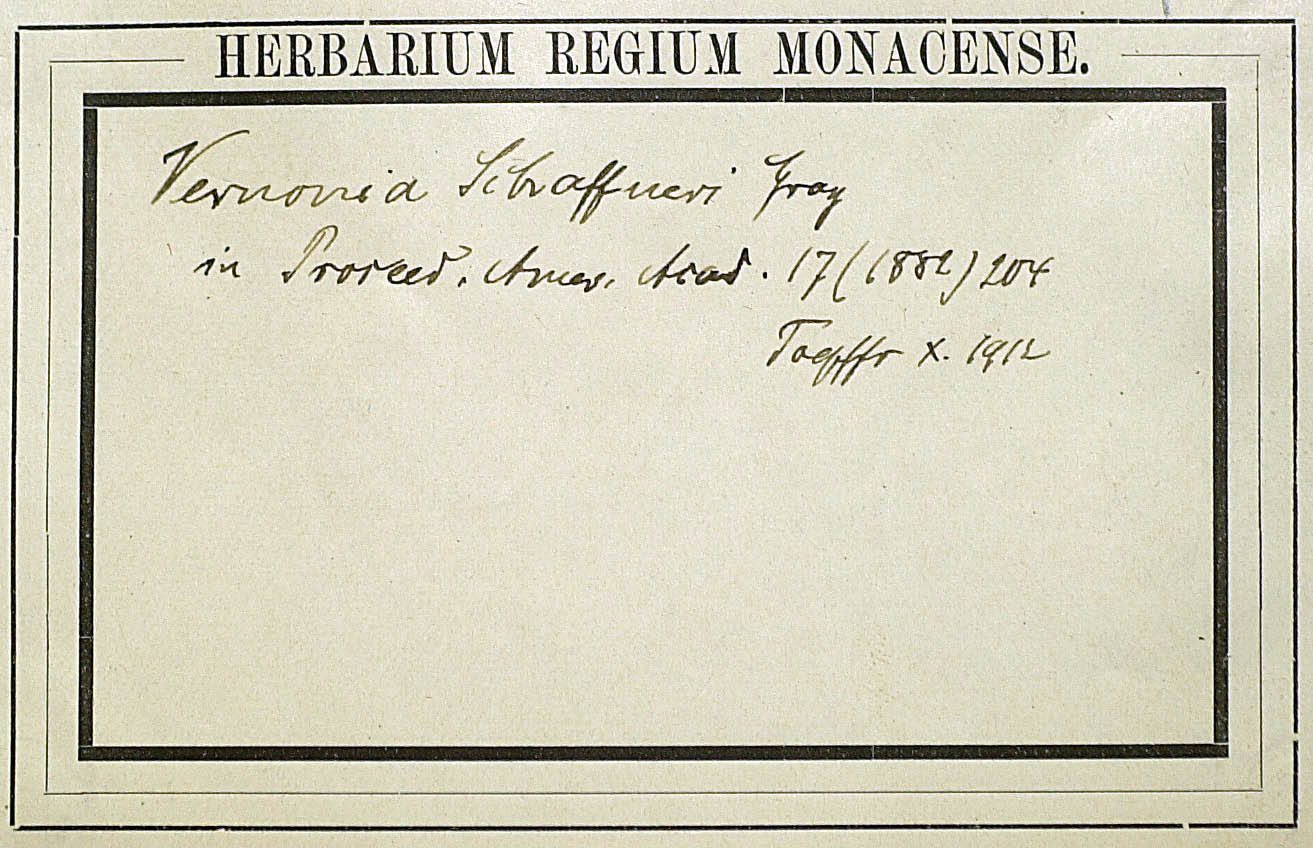 HERBARIUM REGIUM MONACENSE.
Vernonia Schaffneri Gray
in Proceed. Amer. Acad. 17 (1882) 204
Toepffr X. 1912